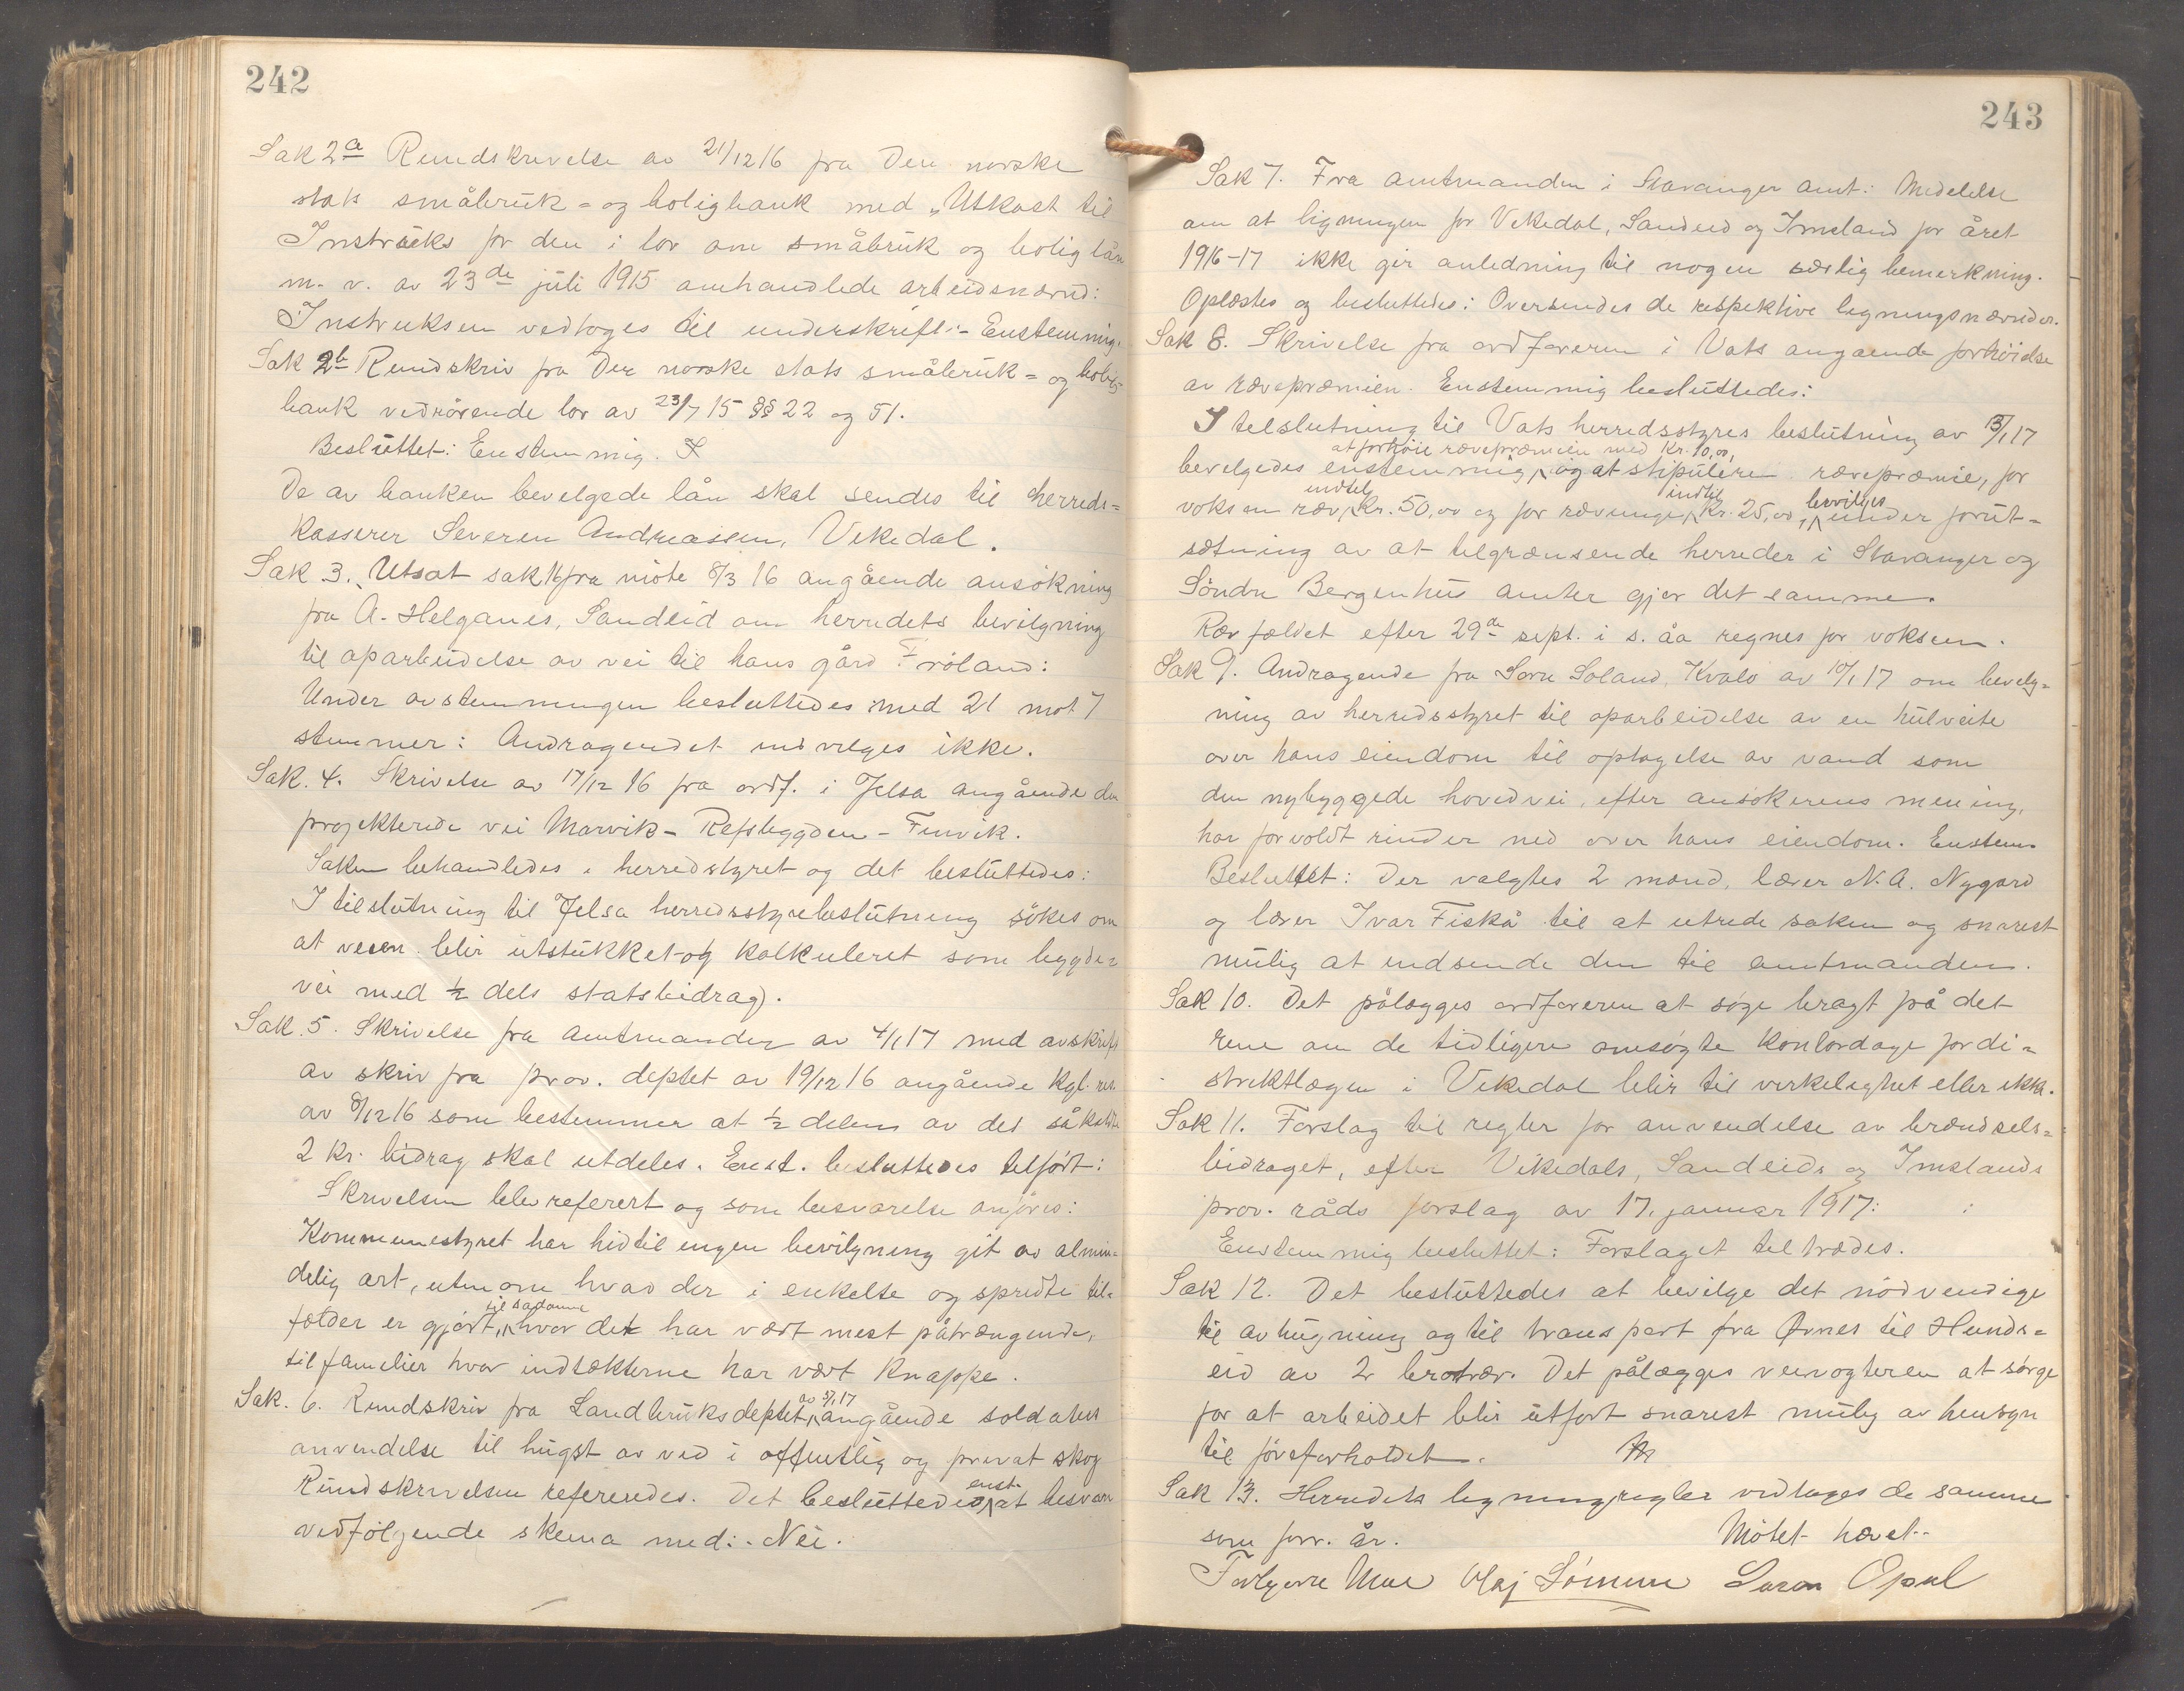 242
Sak 2a Rundskrivelse av 21/12 16 fra Den norske
stats småbruk- og boligbank med „Utkast til
Instruks for den i lov om småbruk og boliglån
m. v. av 23de juli 1915 omhandlede arbeidsnævnd:
Instruksen vedtoges til underskrift:- Enstemmig.
Sak 2b Rundskriv fra Den norske stats småbruk= og bolig=
bank vedrörende lov av 23/7 15 §§ 22 og 51.
Besluttet: Enstemmig.
De av banken bevelgede lån skal sendes til herreds=
kasserer Severen Andreassen, Vikedal.
Sak 3. Utsat sak 16 fra möte 8/3 16 angående ansökning
fra A. Helganes, Sandeid om herredets bevilgning
til oparbeidelse av vei til hans gård Fröland:
Under avstemningen besluttedes med 21 mot 7
stemmer: Andragendet indvilges ikke.
Sak. 4. Skrivelse av 17/12 16 fra ordf. i Jelsa angående den
projekterede vei Marvik- Refsbygden- Finvik.
Saken behandledes i herredstyret og det besluttedes:
I tilslutning til Jelsa herredsstyrebeslutning sökes om
at veien blir utstukket og kalkuleret som bygde=
vei med ½ dels statsbidrag).
Sak. 5. Skrivelse fra amtmanden av 4/1 17 med avskrift
av skriv fra prov. deptet av 19/12 16 angående kgl. res.
av 8/12 16 som bestemmer at ½ delen av det såkaldte
2 Kr. bidrag skal utdeles. Enst. besluttedes tilfört:
Skrivelsen blev referert og som besvarelse anføres:
Kommunestyret har hidtil ingen bevilgning git av almin=
delig art, utenom hvad der i enkelte og spredte til=
fælder er gjort, til sadanne hvor det har vært mest påtrængende,
til familier hvor indtækterne har vært knappe.
Sak. 6. Rundskriv fra Landbruksdeptet av 5/1 17 angående soldaters
anvendelse til hugst av ved i offentlig og privat skog
Rundskrivelsen refereredes. Det besluttedes enst. at besvare
vedfölgende skema med:- Nei.
243
Sak 7. Fra amtmanden i Stavanger amt: Medelelse
om at ligningen for Vikedal, Sandeid og Imsland for året
1916-17 ikke gir anledning til nogen særlig bemerkning.
Oplæstes og besluttedes: Oversendes de respektive ligningsnævnder.
Sak 8. Skrivelse fra ordføreren i Vats angaende forhöidse
av rævepræmien. Enstemmig besluttedes:
I telslutning til Vats herredsstyres beslutning av 13/1 17
bevelgedes enstemmig at forhöie rævepræmien med Kr. 10,00, og at stipulere rævepræmie, for
voksen ræv indtil Kr. 50,00 og for rævunge indtil Kr. 25,00, bevilges under forut=
sætning av at tilgrænsende herreder i Stavanger og
Söndre Bergenhus amter gjør det samme.
Ræv fældet efter 29de sept. i s. åa regnes for voksen.
Sak 9. Andragende fra Soland, Kvalö av 10/1 17 om bevelg=
ning av herredsstyret til oparbeidelse av en kulveite
over hans eiendom til optagelse av vand som
den nybyggede hovedvei, efter ansökerens mening,
har forvoldt rinder ned over hans eiendom. Enstem.
Besluttet: Der valgtes 2 mænd, lærer N. A. Nygard
og lærer Ivar Fiskå til at utrede saken og snarest
mulig at indsende den til amtmanden.
Sak 10. Det pålægges ordføreren at søge bragt på det
rene om de tidligere ansøgte kontordage for di=
striktlægen i Vikedal blir til virkelighet eller ikke.
Sak 11. Forslag til regler for anvendelse av brændsels=
bidraget, efter Vikedals, Sandeids og Imslands
prov. råds forslag av 17. januar 1917:
Enstemmig besluttet: Forslaget tiltrædes.
Sak 12. Det besluttedes at bevilge det nödvendige
til avhugning og til transport fra Ørnes til Hunds=
eid av 2 brotrær. Det pålægges veivogteren at sørge
for at arbeidet blir utfort snarest mulig av hensyn
til föreforholdet.
Sak 13. Herredets ligningsregler vedtages de samme
som forr. år. Mötet hævet.
Torbjørn Mæle Olaf Lömme Søren Opsal